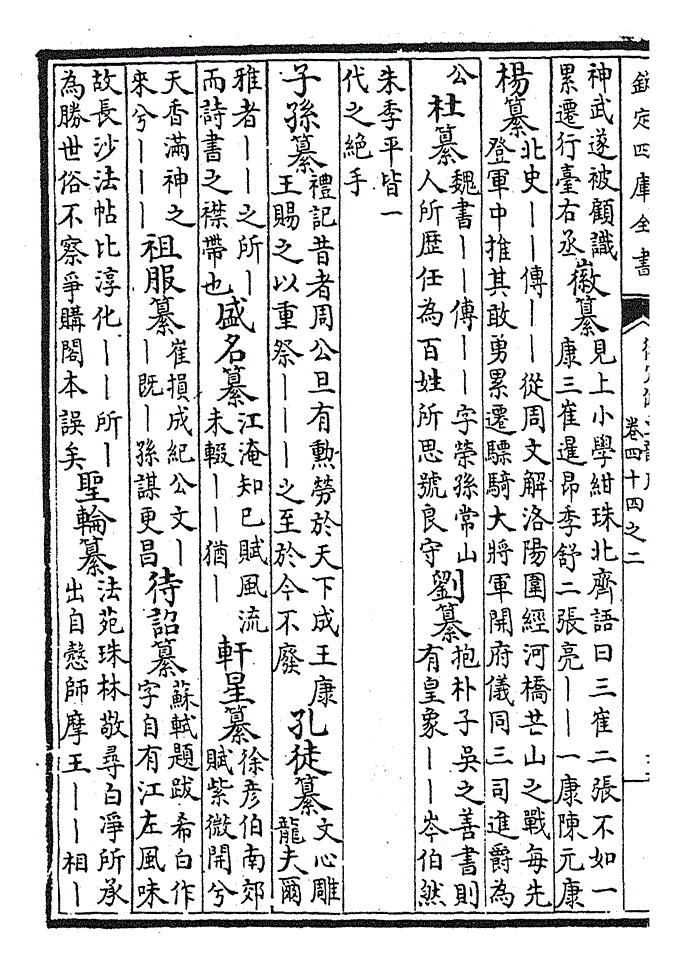 欽定四庫全書
卷四十四之二
神武遂被顧識
累遷行臺右丞
徽纂
見上小學紺珠北齊語曰三崔二張不如一
康三崔暹昂季舒二張亮——一康陳元康
楊纂
北史——傳——從周文解洛陽圍經河橋芒山之戰每先
登軍中推其敢勇累遷驃騎大將軍開府儀同三司進爵為
公
杜纂
魏書——傳——字榮孫常山
人所歴任為百姓所思號良守
劉纂
抱朴子吳之善書則
有皇象——岑伯然
朱季平皆一
代之絶手
子孫纂
禮記昔者周公旦有勲勞於天下成王康
王賜之以重祭———之至於今不廢
孔徒纂
文心雕
龍夫爾
雅者——之所—
而詩書之襟帶也
盛名纂
江淹知已賦風流
未輟——猶—
軒星纂
徐彦伯南郊
賦紫微開兮
天香滿神之
來兮———
祖服纂
崔損成紀公文—
—既—孫謀更昌
待詔纂
蘇軾題跋希白作
字自有江左風味
故長沙法帖比淳化——所—
為勝世俗不察爭購閣本誤矣
聖輪纂
法苑珠林敬尋白淨所承
出自憼師摩王——相—